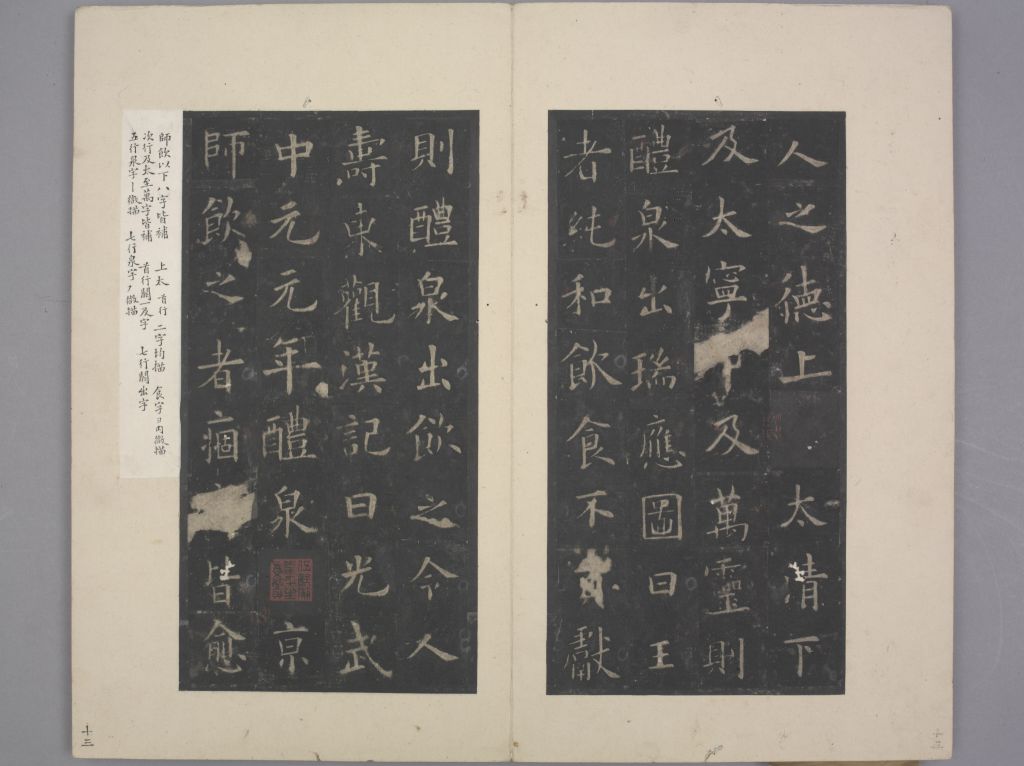 人之德上 太清下
及太寧中及萬靈則
醴泉出瑞應圖曰王
者純和飲食不獻
則醴泉出飲之令人
壽東觀漢記曰光武
中元元年醴泉 京
師飲之者痼皆愈
師飲以下八字皆補 上太首行二字均描 食字ヨ內微描
次行及太至萬字皆補 首行闕一及字 七行闕出字
五行泉字丨微描 七行泉字微描
十三
十三